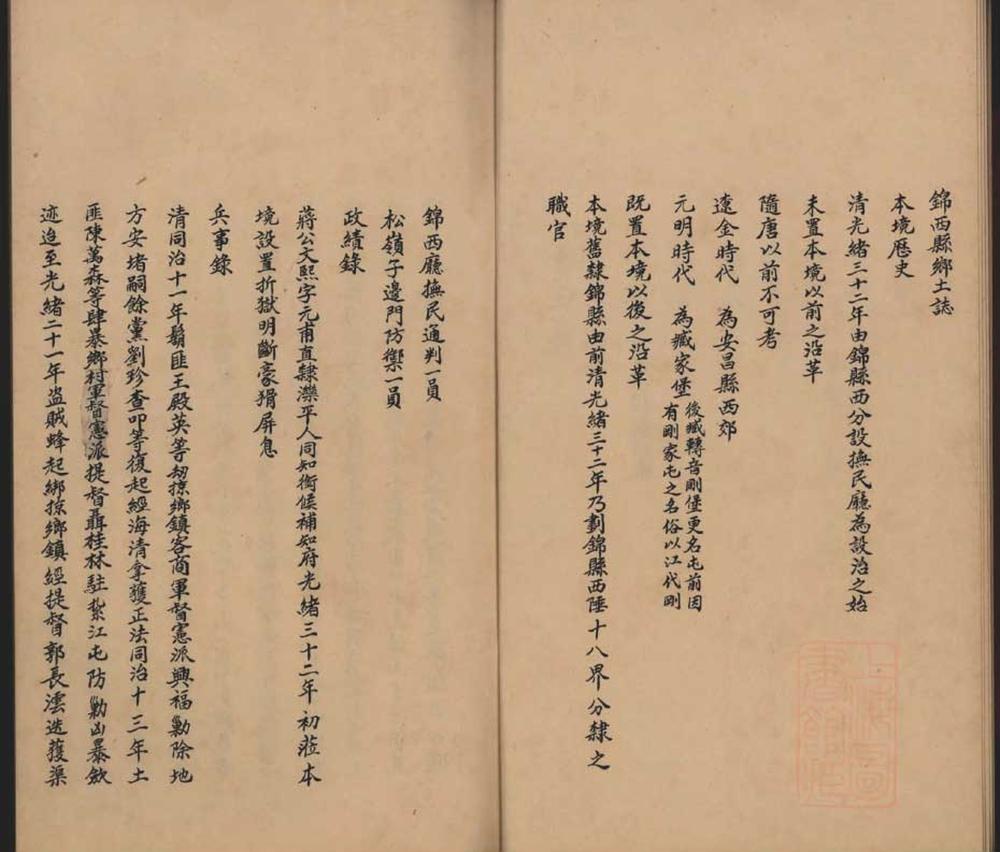 錦西縣鄉土誌
本境歷史
清光緒三十二年由錦縣西分設撫民廳為設治之始
未置本境以前之沿革
隨唐以前不可考
遼金時代 為安昌縣西郊
元明時代 為臧家堡
後臧轉音剛堡更名屯前因
有剛家屯之名俗以江代剛
既置本境以後之沿革
本境舊隸錦縣由前清光緒三十二年乃劃錦縣西陲十八界分隸之
職官
錦西廳撫民通判一員
松嶺子邊門防禦一員
政績錄
蔣公文熙字元甫直隸灤平人同知銜候補知府光緒三十二年初蒞本
境設置折獄明斷豪猾屏息
兵事錄
清同治十一年鬍匪王殿英等刼掠鄉鎮客商軍督憲派興福勦除地
方安堵嗣餘黨劉珍查叩等復起經海清拿獲正法同治十三年土
匪陳萬森等肆暴鄉村軍督憲派提督聶桂林駐紮江屯防勦凶暴斂
迹迨至光緒二十一年盜賊蜂起綁掠鄉鎮經提督郭長澐迭獲渠
上海圖書館藏